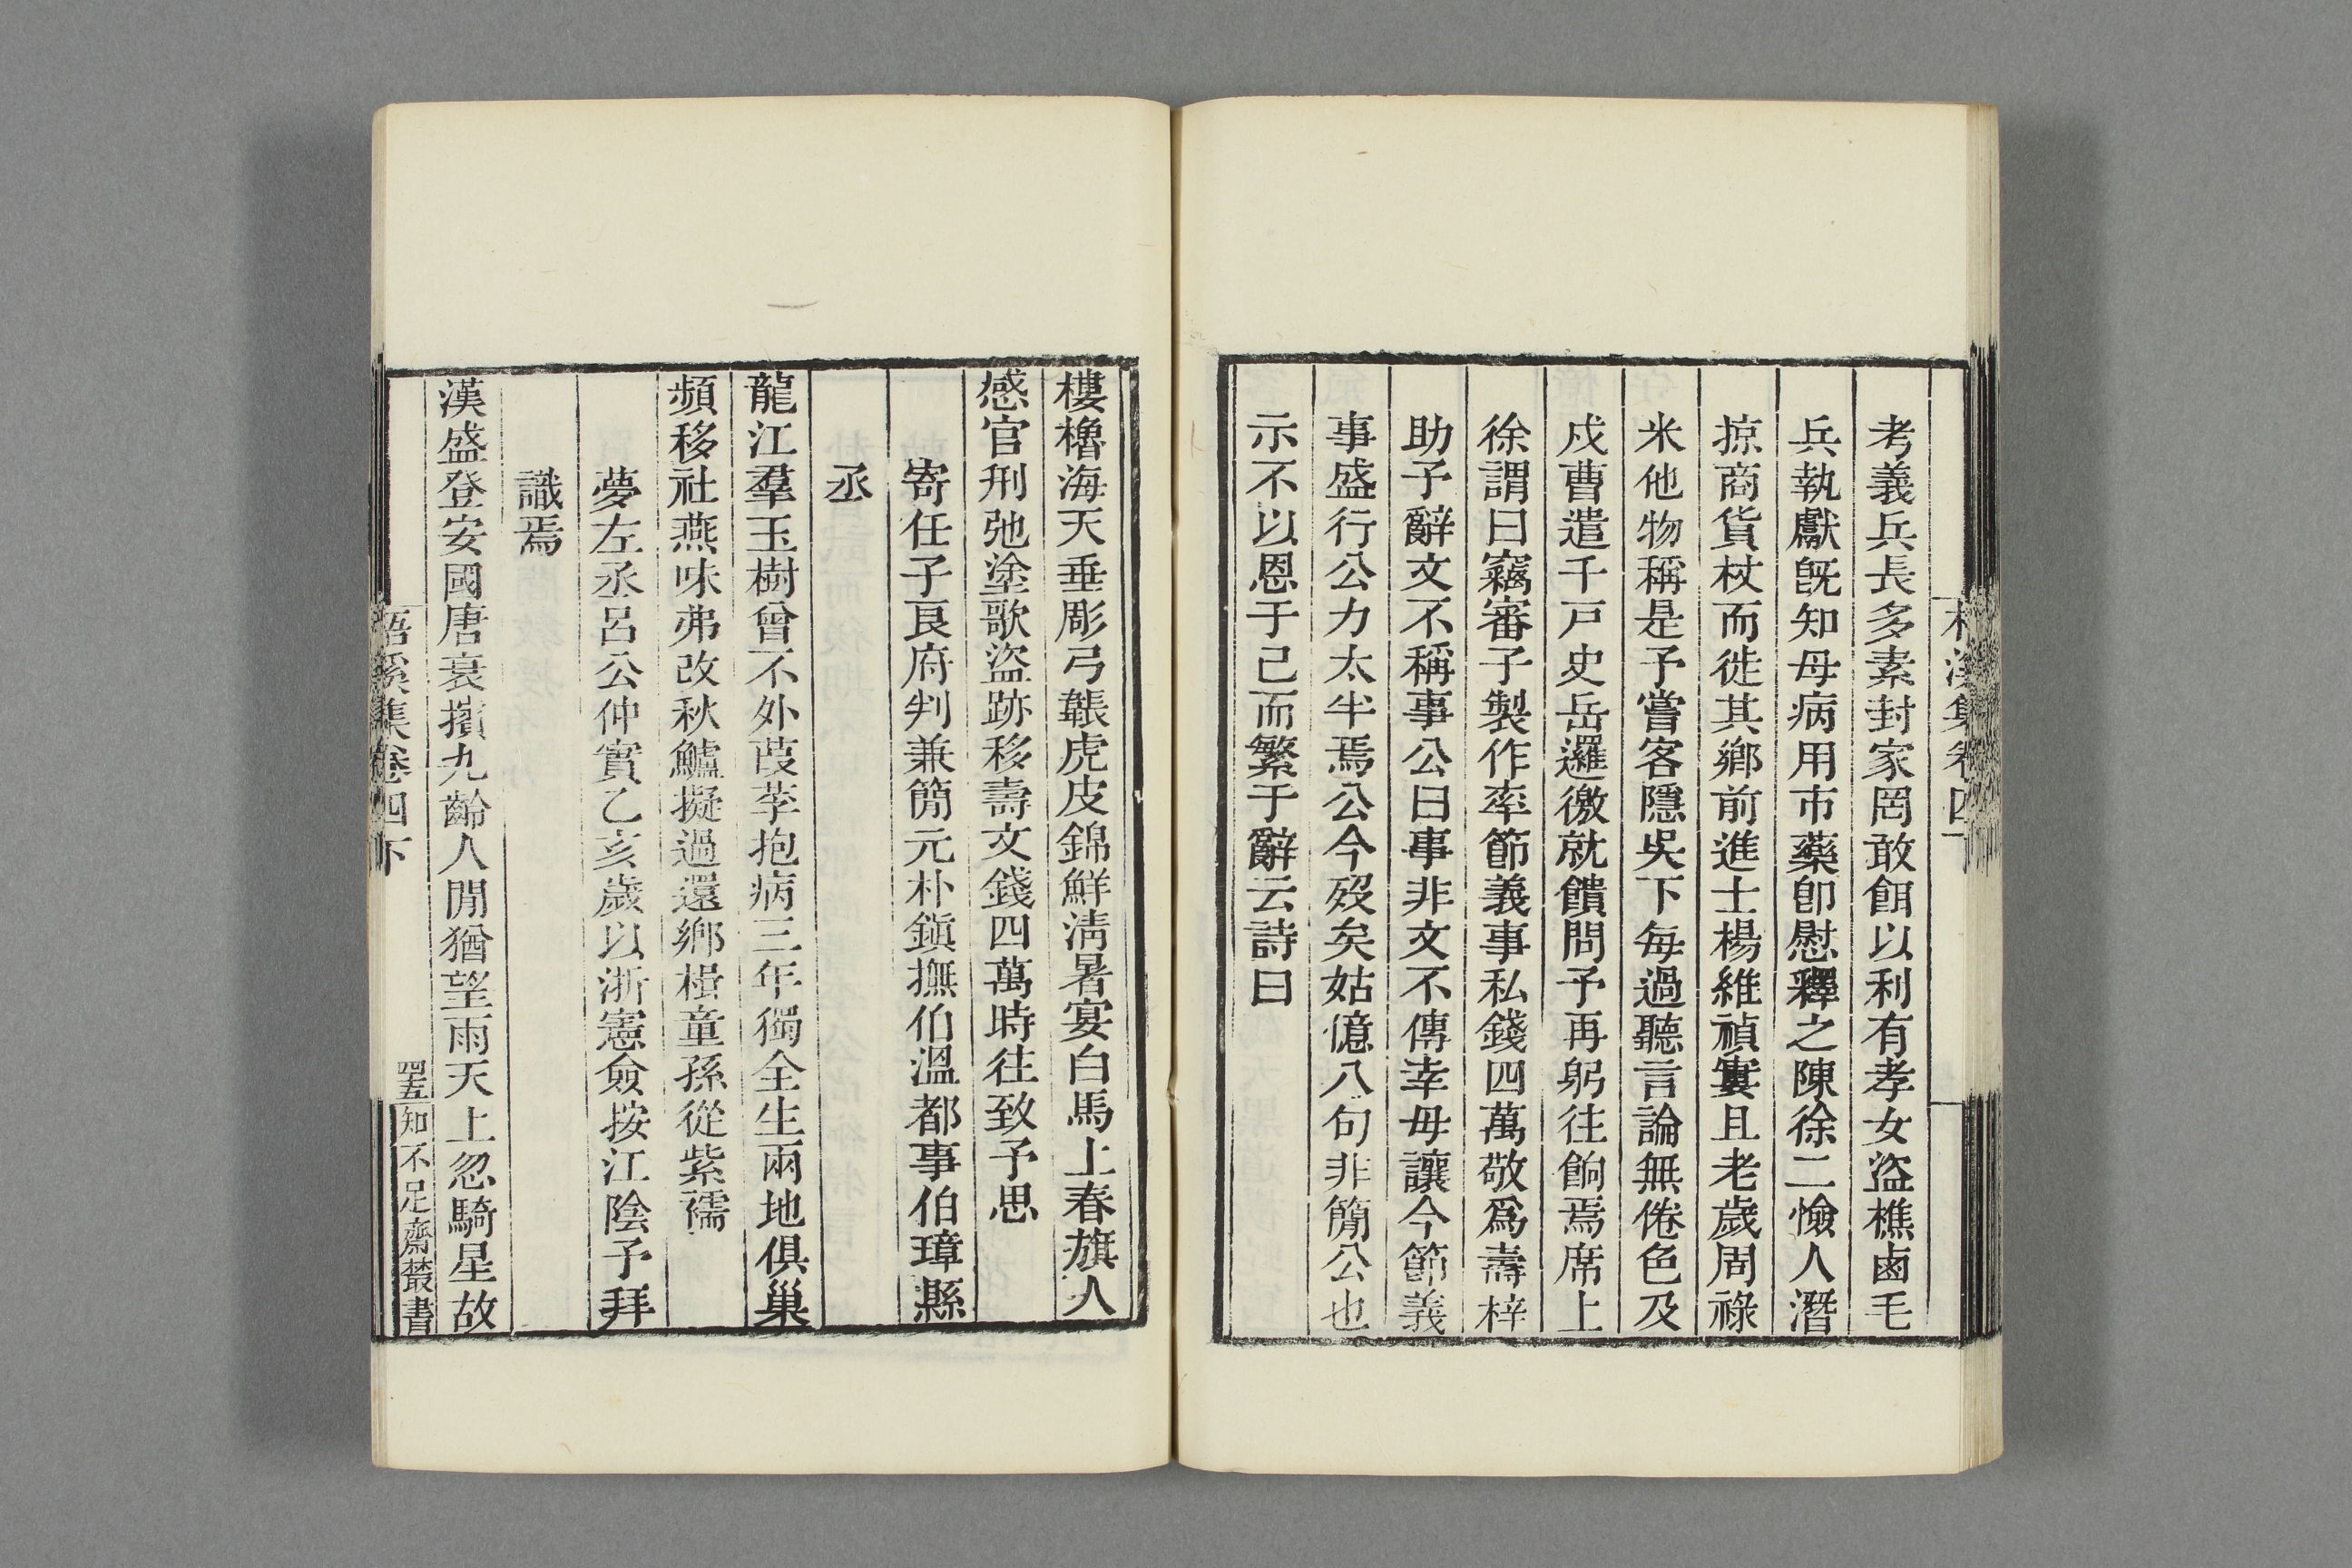 考義兵長多素封家罔敢餌以利有孝女盜樵鹵毛
兵執獻旣知母病用市藥卽慰釋之陳徐二憸人潛
掠商貨杖而徙其鄉前進士楊維禎寠且老歲周祿
米他物稱是予嘗客隱吳下每過聽言論無倦色及
戍曹遣千戸史岳邏徼就饋問予再躬往餉焉席上
徐謂曰竊審子製作率節義事私錢四萬敬爲壽梓
助予辭文不稱事公曰事非文不傳幸毋讓今節義
事盛行公力太半焉公今歿矣姑億八句非簡公也
示不以恩于己而繁于辭云詩曰
樓櫓海天垂彫弓韔虎皮錦鮮淸暑宴白馬上春旗人
感官刑弛塗歌盜跡移壽文錢四萬時往致予思
寄任子良府判兼簡元朴鎭撫伯溫都事伯璋縣
丞
龍江羣玉樹曾不外葭莩抱病三年獨全生兩地俱巢
頻移社燕味弗改秋鱸擬過還鄉楫童孫從紫襦
夢左丞呂公仲實乙亥歲以浙憲僉按江陰予拜
識焉
漢盛登安國唐衰擯九齡人閒猶望雨天上忽騎星故
梧溪集卷四下
四五
知不足齋叢書